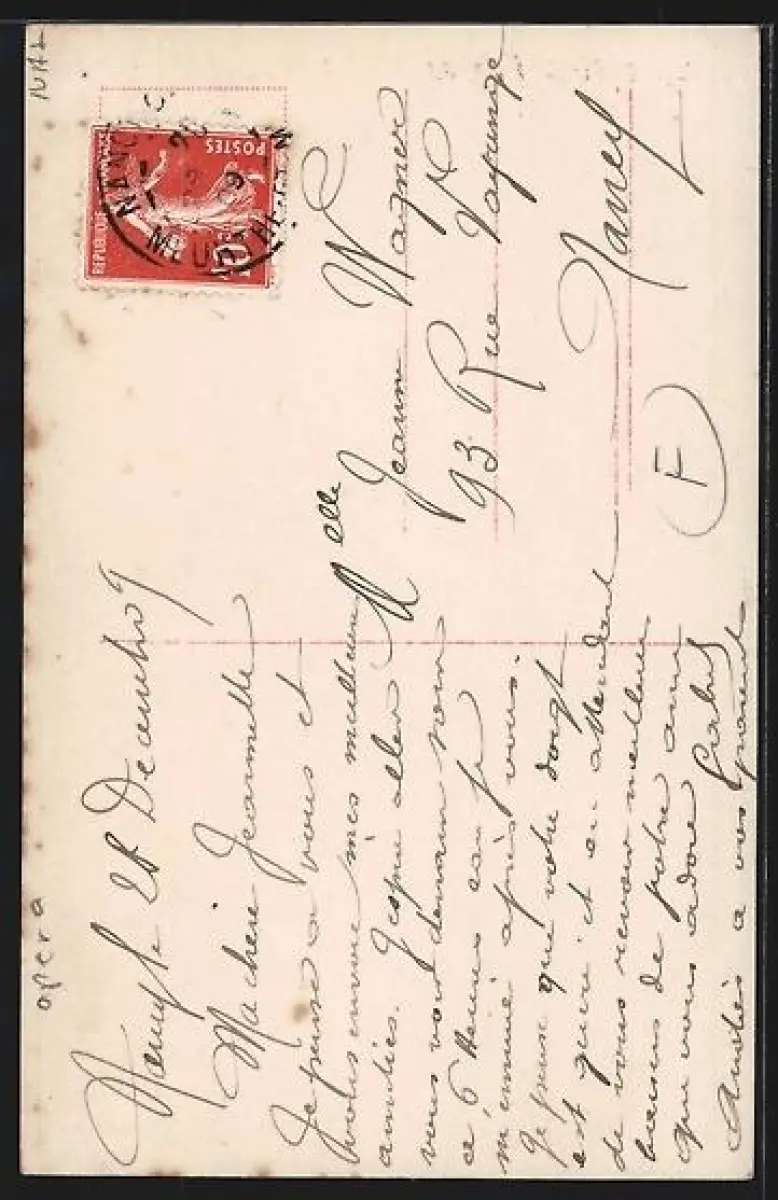 opera
Nancy le 28 Decembre 09
Ma chère Jeannette
Je pense a vous et
vous envoie mes meilleures
amitiés. J'espère aller
vous voir demain soir
a 6 heures car je
m'ennuie après vous.
Je pense que votre doigt
est guéri et en attendant
de vous revoir meilleurs
baisers de votre amie
que vous adore
Amitiés a vos parents
Melle
Jeanne Wagner
93 Rue
Nancy
F
REPUBLIQUE
POSTES
10
NANCY
MEURTHE